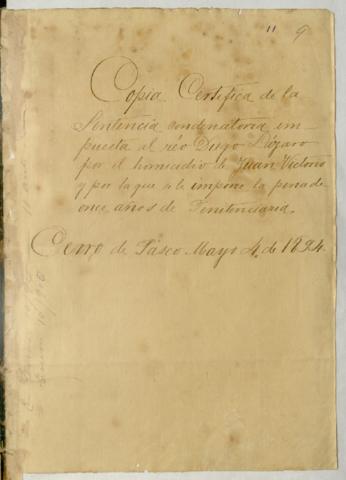 11 9
Copia Certifica de la
Sentencia condenatoria im-
puesta al reo Diego Lázaro
por el homicidio de Juan Victorio
y por la que se le impone la pena de
once años de Penitenciaria.
Cerro de Pasco Mayo 4, de 1894.